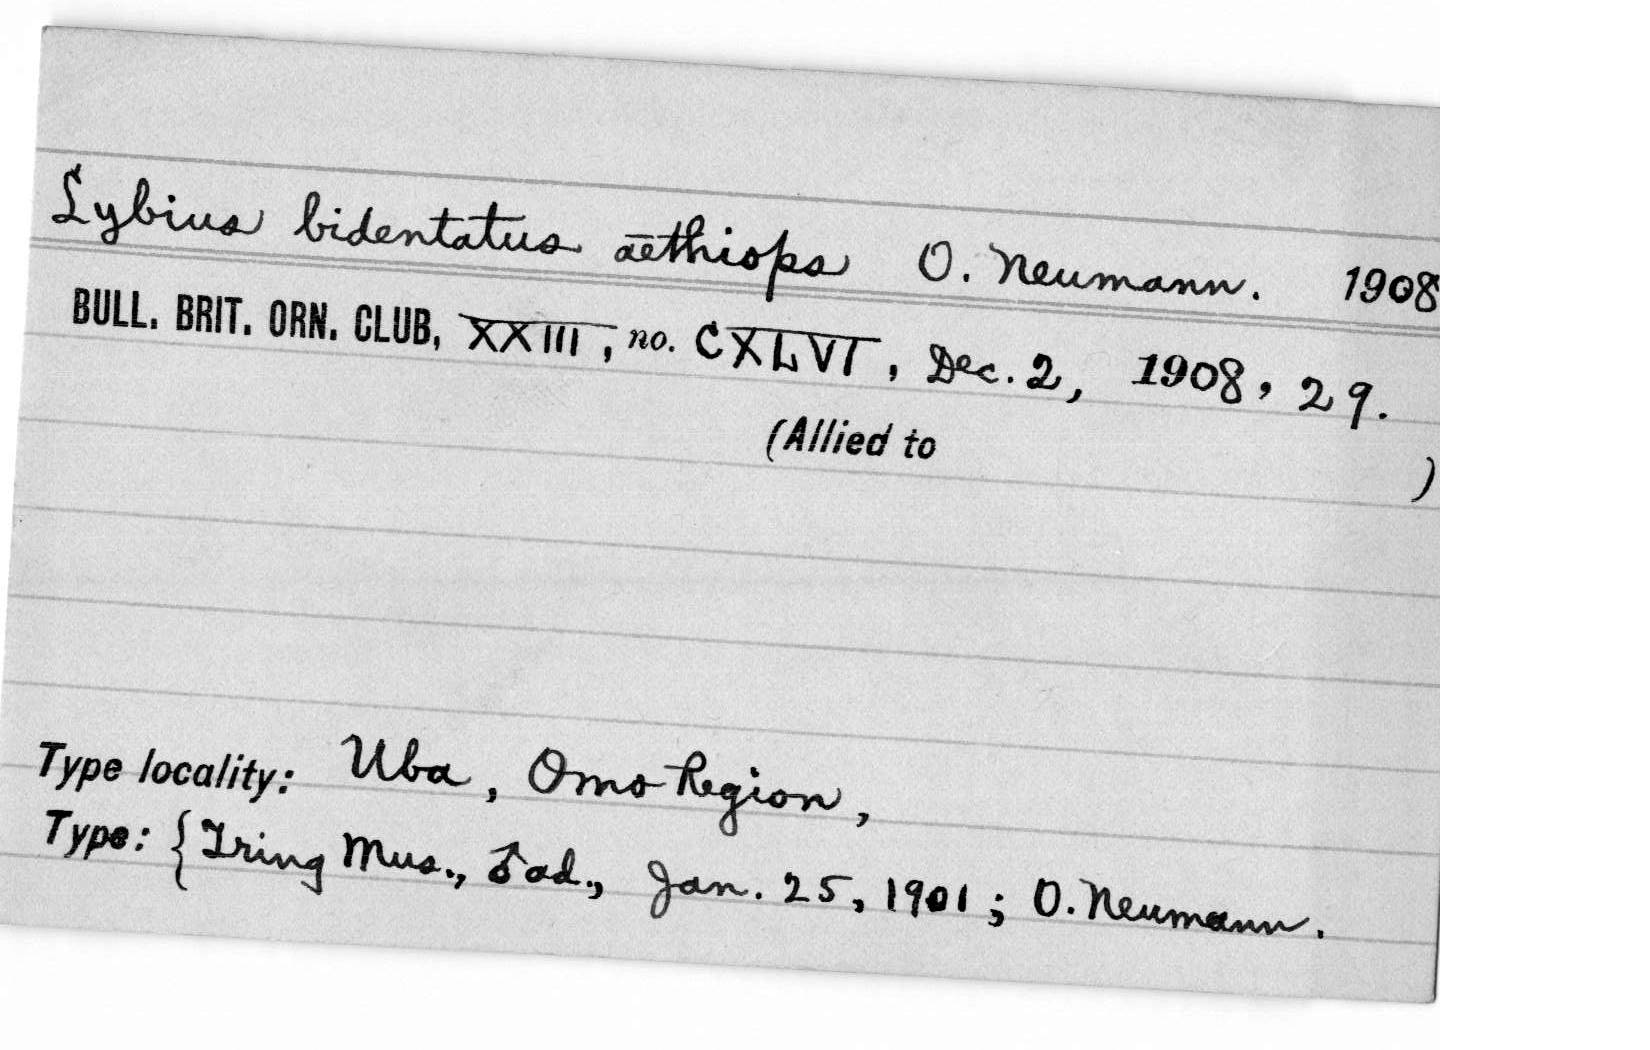 Lybius bidentatus aethiops O. Neumann. 1908
BULL. BRIT. ORN. CLUB, XXIII, no. CXLVI, Dec. 2, 1908, 29.
(Allied to )
Type locality: Uba, Omo Region,
Type: {Tring Mus., ♂ ad., Jan. 25, 1901; O. Neumann.